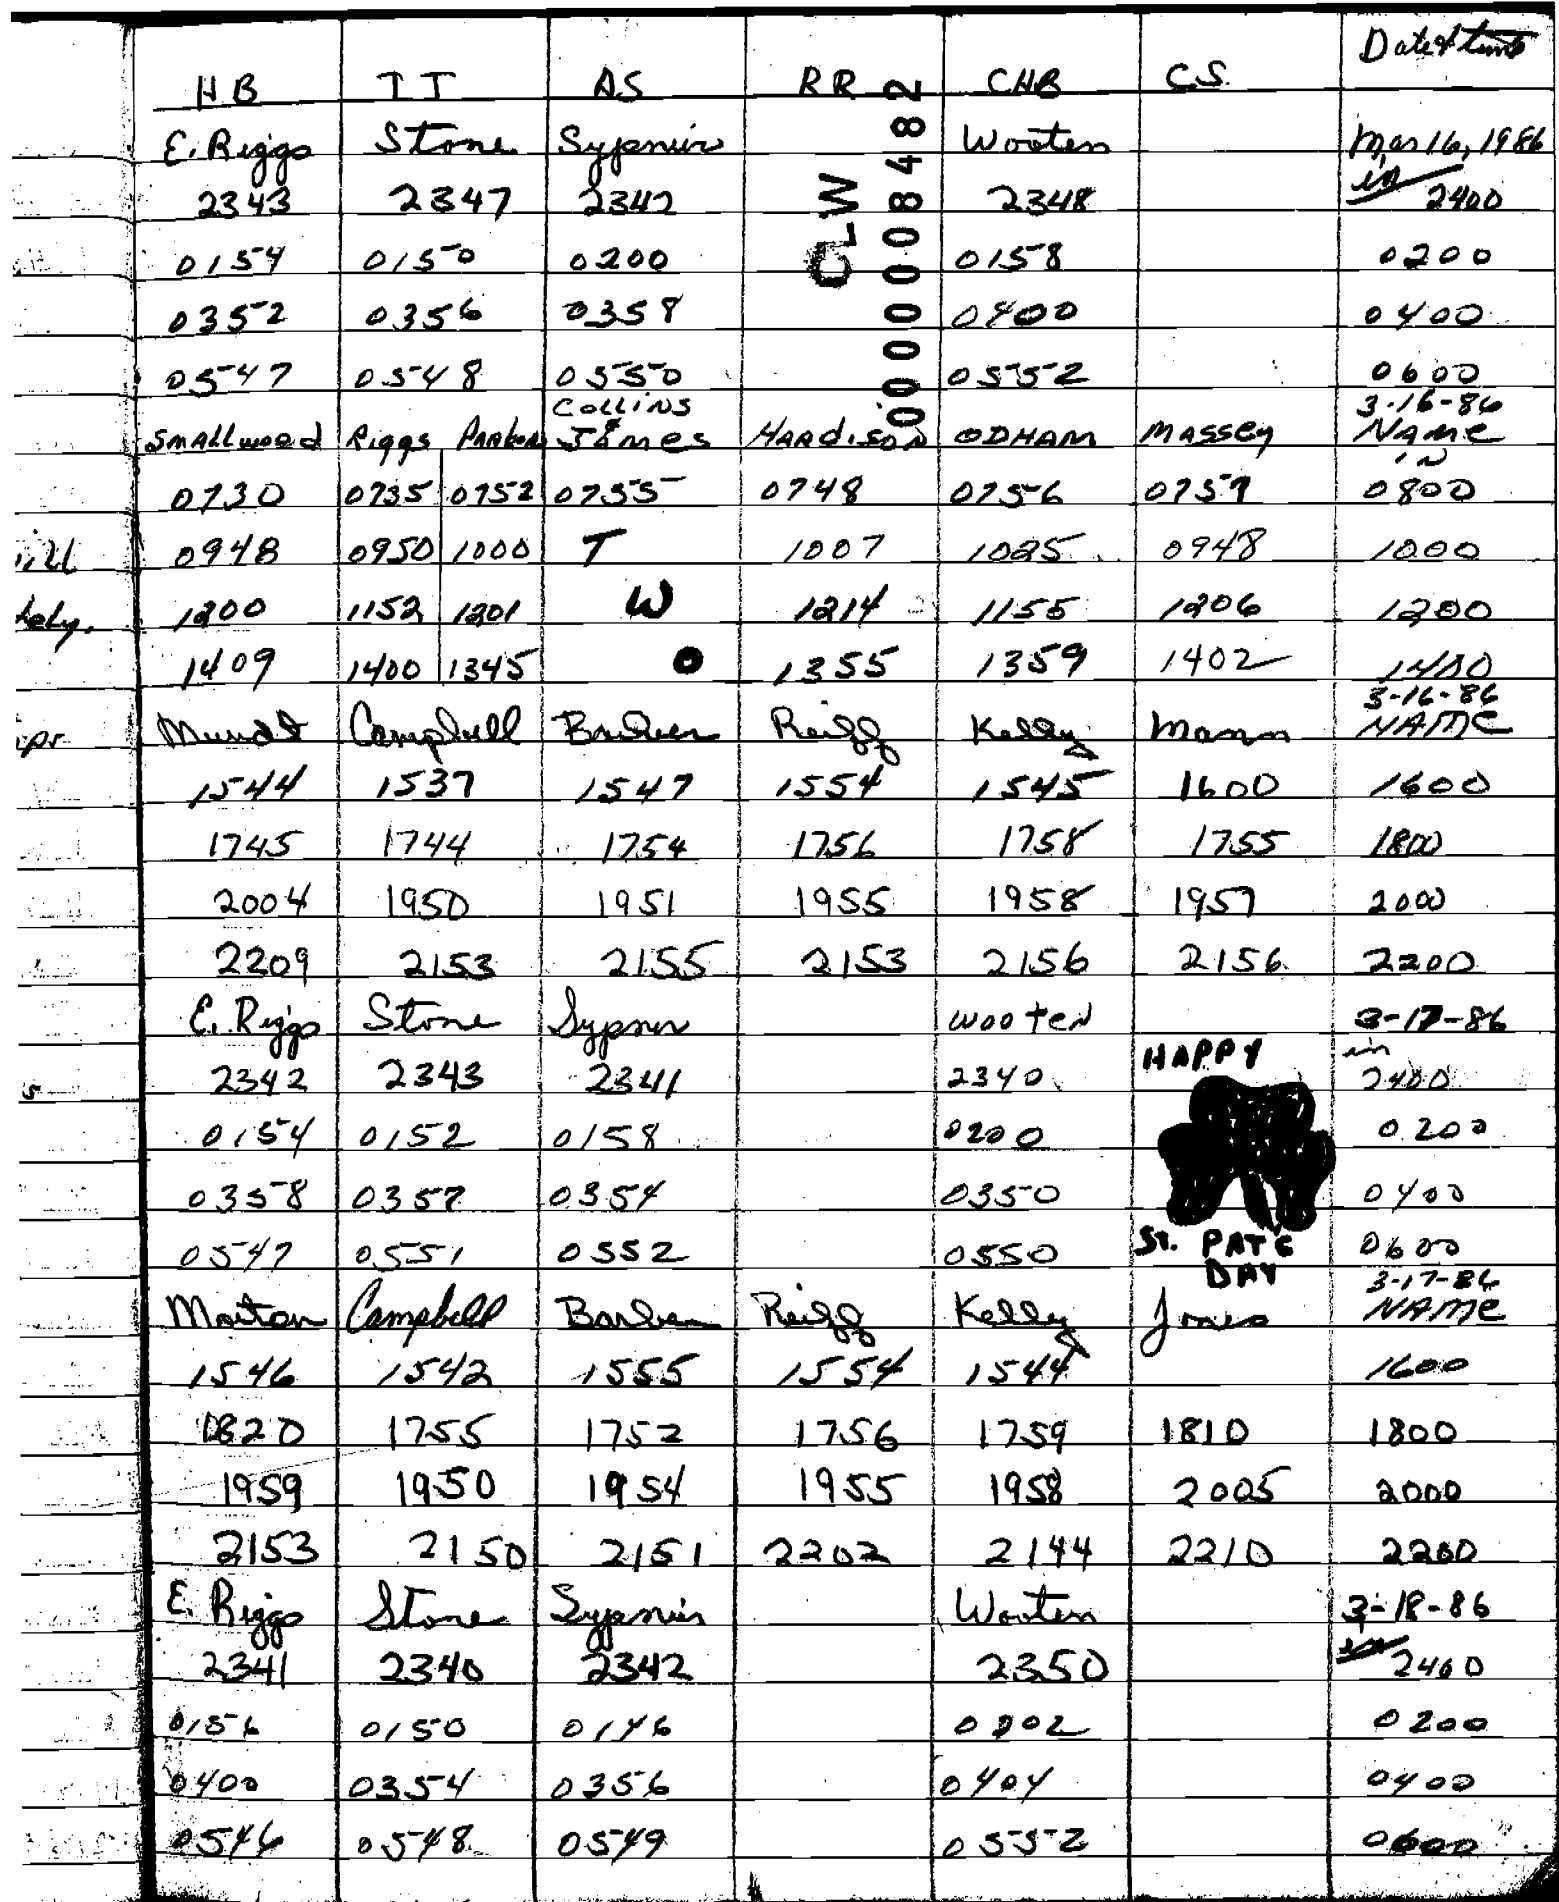 Date & time
HB TT AS RR CHB C.S.
CLW 000008482
E. Riggs Stone Sypnier Wooten Mar 16, 1986
in
2343 2347 2342 2348 2400
0154 0150 0200 0158 0200
0352 0356 0358 0400 0400
0547 0548 0550 0552 0600
Collins 3-16-86
Smallwood Riggs Parker James Hardison Odham Massey Name
in
0730 0735 0752 0755 0748 0756 0757 0800
ill 0948 0950 1000 T 1007 1025 0948 1000
tely. 1200 1152 1201 W 1214 1155 1206 1200
1409 1400 1345 O 1355 1359 1402 1400
3-16-86
Mundt Campbell Barber Reigg Kelly Mann NAME
1544 1537 1547 1554 1545 1600 1600
1745 1744 1754 1756 1758 1755 1800
2004 1950 1951 1955 1958 1957 2000
2209 2153 2155 2153 2156 2156 2200
E. Riggs Stone Sypnier Wooten 3-17-86
HAPPY in
s 2342 2343 2341 2340 2400
0154 0152 0158 0200 0200
0358 0357 0354 0350 0400
0547 0551 0552 0550 ST. PAT'S 0600
DAY 3-17-86
Morton Campbell Barber Reigg Kelly Jones NAME
1546 1542 1555 1554 1544 1600
1820 1755 1752 1756 1759 1810 1800
1959 1950 1954 1955 1958 2005 2000
2153 2150 2151 2202 2144 2210 2200
E. Riggs Stone Sypnier Wooten 3-18-86
2341 2340 2342 2350 2400
0156 0150 0146 0202 0200
0400 0354 0356 0404 0400
0546 0548 0549 0552 0600